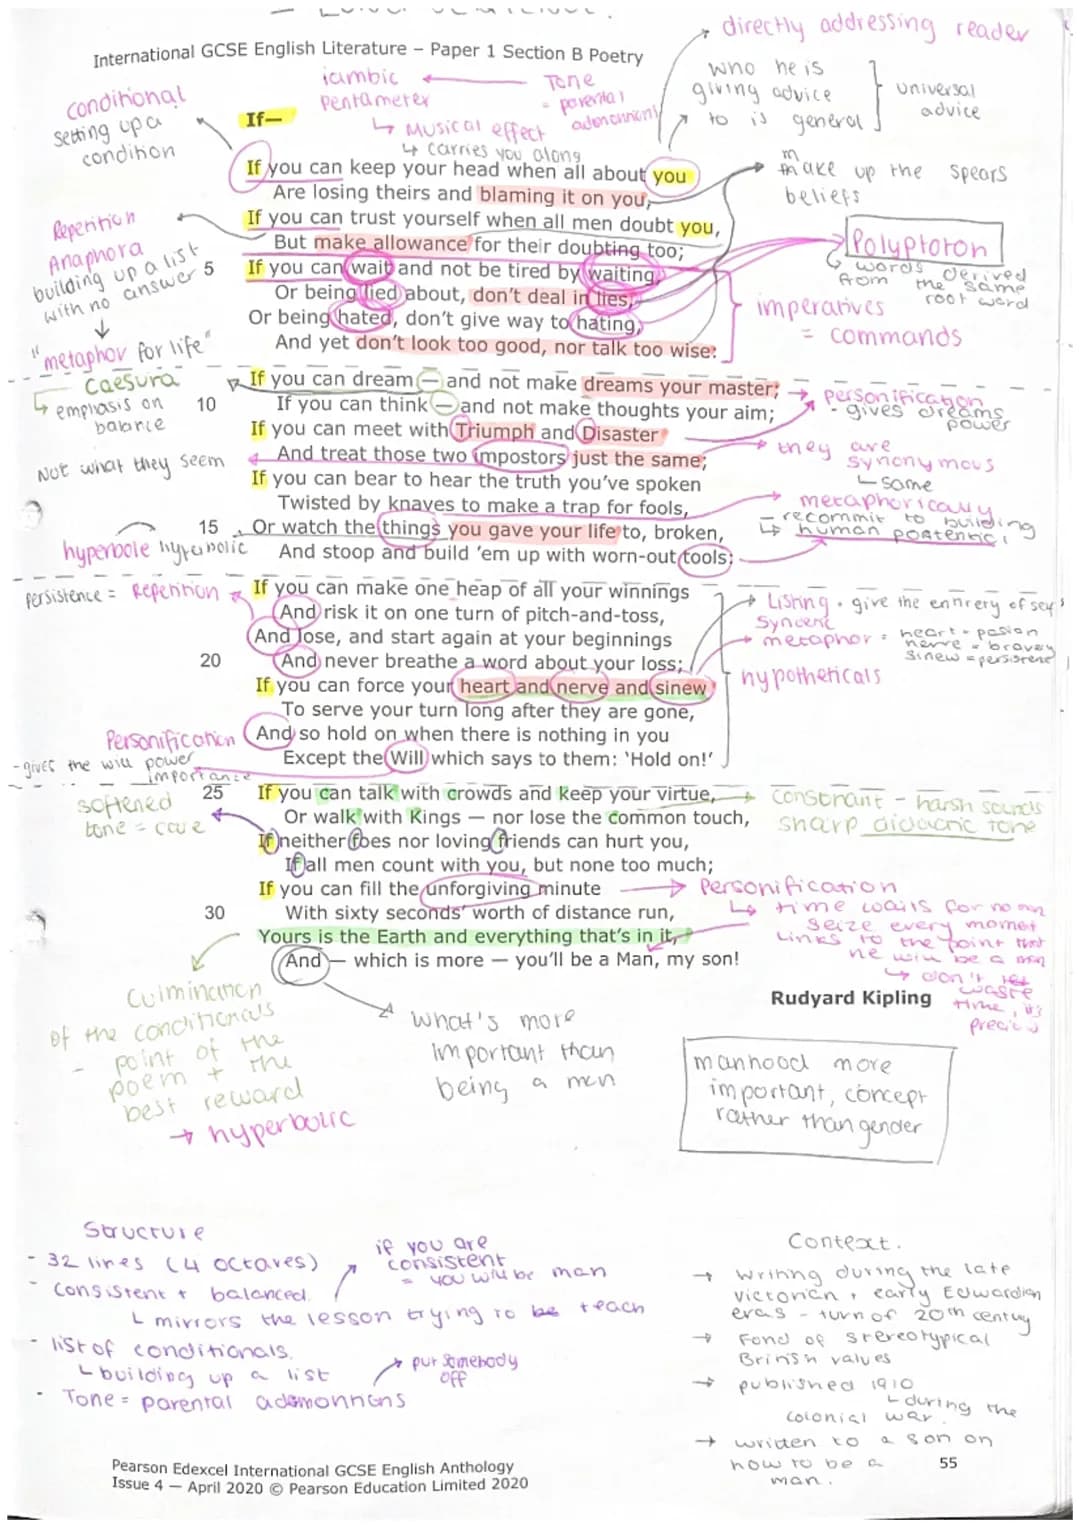 International GCSE English Literature – Paper 1 Section B Poetry
directly addressing reader
who he is
giving advice
to is general
universal
advice
iambic
pentameter
Tone
= parental
↳ Musical effect
↳ carries you along
conditional
setting up a
condition
If—
If you can keep your head when all about you
Are losing theirs and blaming it on you,
If you can trust yourself when all men doubt you,
But make allowance for their doubting too;
5 If you can wait and not be tired by waiting,
Or being lied about, don't deal in lies,
Or being hated, don't give way to hating,
And yet don't look too good, nor talk too wise:
make up the spears
beliefs
Polyptoton
↳ words derived
from the same
root word
imperatives
= commands
Repetition
Anaphora
building up a list
with no answer
"metaphor for life"
If you can dream — and not make dreams your master;
10 If you can think — and not make thoughts your aim;
If you can meet with Triumph and Disaster
And treat those two impostors just the same;
If you can bear to hear the truth you've spoken
Twisted by knaves to make a trap for fools,
15 Or watch the things you gave your life to, broken,
And stoop and build 'em up with worn-out tools:
Caesura
↳ emphasis on
balance
Not what they seem
hyperbole hyperbolic
→ personification
- gives dreams
power
→ they are
synonymous
↳ same
metaphorically
- recommit to building
↳ human
If you can make one heap of all your winnings
And risk it on one turn of pitch-and-toss,
And lose, and start again at your beginnings
20 And never breathe a word about your loss;
If you can force your heart and nerve and sinew
To serve your turn long after they are gone,
And so hold on when there is nothing in you
Except the Will which says to them: 'Hold on!'
Persistence = Repetition
Listing · give the entirety of self
metaphor =
heart = pasion
nerve = bravery
hypotheticals
Personification
- gives the will power
importance
25 If you can talk with crowds and keep your virtue,
Or walk with Kings — nor lose the common touch,
If neither foes nor loving friends can hurt you,
If all men count with you, but none too much;
If you can fill the unforgiving minute
30 With sixty seconds' worth of distance run,
Yours is the Earth and everything that's in it,
And — which is more — you'll be a Man, my son!
softened
tone = care
consonant - harsh sounds
sharp didactic tone
→ Personification
↳ time waits for no man
seize every moment
Links to the point that
he will be a man
↳ don't
waste
time, it's
Rudyard Kipling
Culmination
of the conditionals
- point of the
poem + the
best reward
→ hyperbolic
What's more
important than
being a man
manhood more
important, concept
rather than gender
Structure
- 32 lines (4 octaves)
- consistent + balanced.
if you are
consistent
= you will be man
↳ mirrors the lesson trying to be teach
- list of conditionals.
↳ building up a list
put somebody
off
- Tone = parental
Context.
→ writing during the late
victorian + early Edwardian
eras - turn of 20th century
→ Fond of stereotypical
British values
→ published 1910
↳ during the
colonial war.
→ written to a son on
how to be a
man.
Pearson Edexcel International GCSE English Anthology
Issue 4 — April 2020 © Pearson Education Limited 2020
55